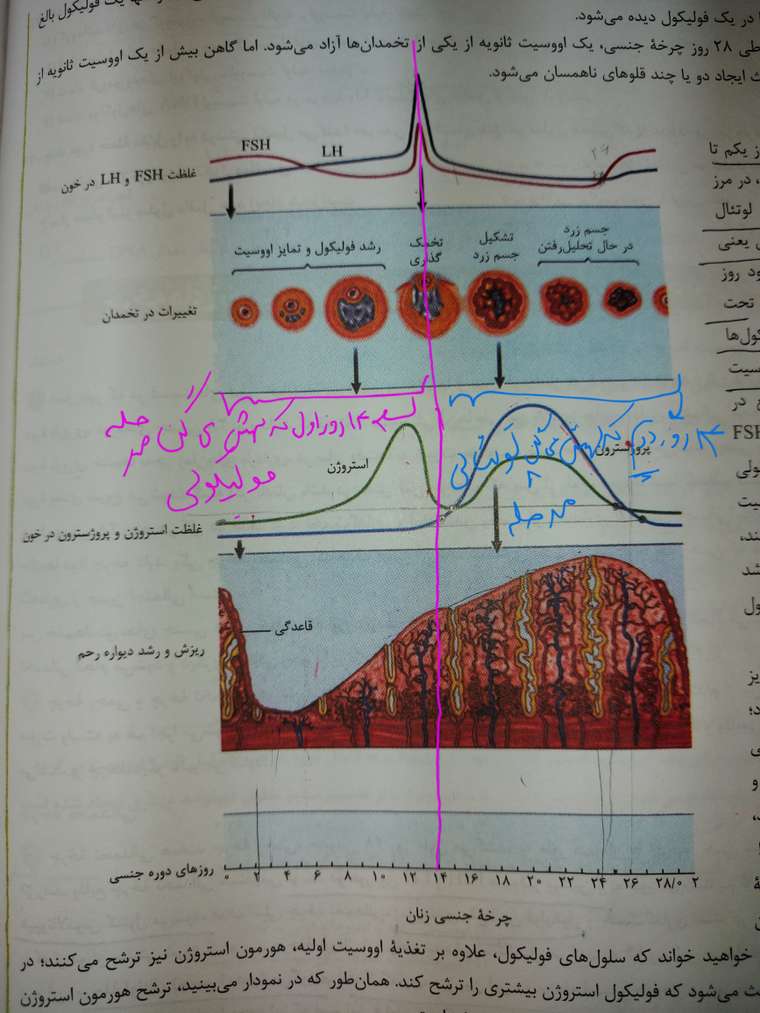 ا در یک فولیکول دیده می‌شود.
طی ۲۸ روز چرخهٔ جنسی، یک اووسیت ثانویه از یکی از تخمدان‌ها آزاد می‌شود. اما گاهن بیش از یک اووسیت ثانویه از
ث ایجاد دو یا چند قلوهای ناهمسان می‌شود.
FSH
LH
غلظت FSH و LH در خون
رشد فولیکول و تمایز اووسیت
تخمک گذاری
تشکیل جسم زرد
جسم زرد
در حال تحلیل‌رفتن
تغییرات در تخمدان
۱۴ روز اول که بهش می گن مرحله
فولیکولی
۱۴ روز دوم که بهش می گن لوتئالی
مرحله
استروژن
پروژسترون
غلظت استروژن و پروژسترون در خون
قاعدگی
ریزش و رشد دیواره رحم
روزهای دوره جنسی
۰ ۲ ۴ ۶ ۸ ۱۰ ۱۲ ۱۴ ۱۶ ۱۸ ۲۰ ۲۲ ۲۴ ۲۶ ۲۸/۰ ۲
چرخهٔ جنسی زنان
خواهید خواند که سلول‌های فولیکول، علاوه بر تغذیهٔ اووسیت اولیه، هورمون استروژن نیز ترشح می‌کنند؛ در
ث می‌شود که فولیکول استروژن بیشتری را ترشح کند. همان‌طور که در نمودار می‌بینید، ترشح هورمون استروژن
ز یکم تا
، در مرز
لوتئال
ی یعنی
ود روز
تحت
کول‌ها
سیت
ع در
FSH
ولی
سیت
ند،
شد
ول
یز
د؛
ی
و